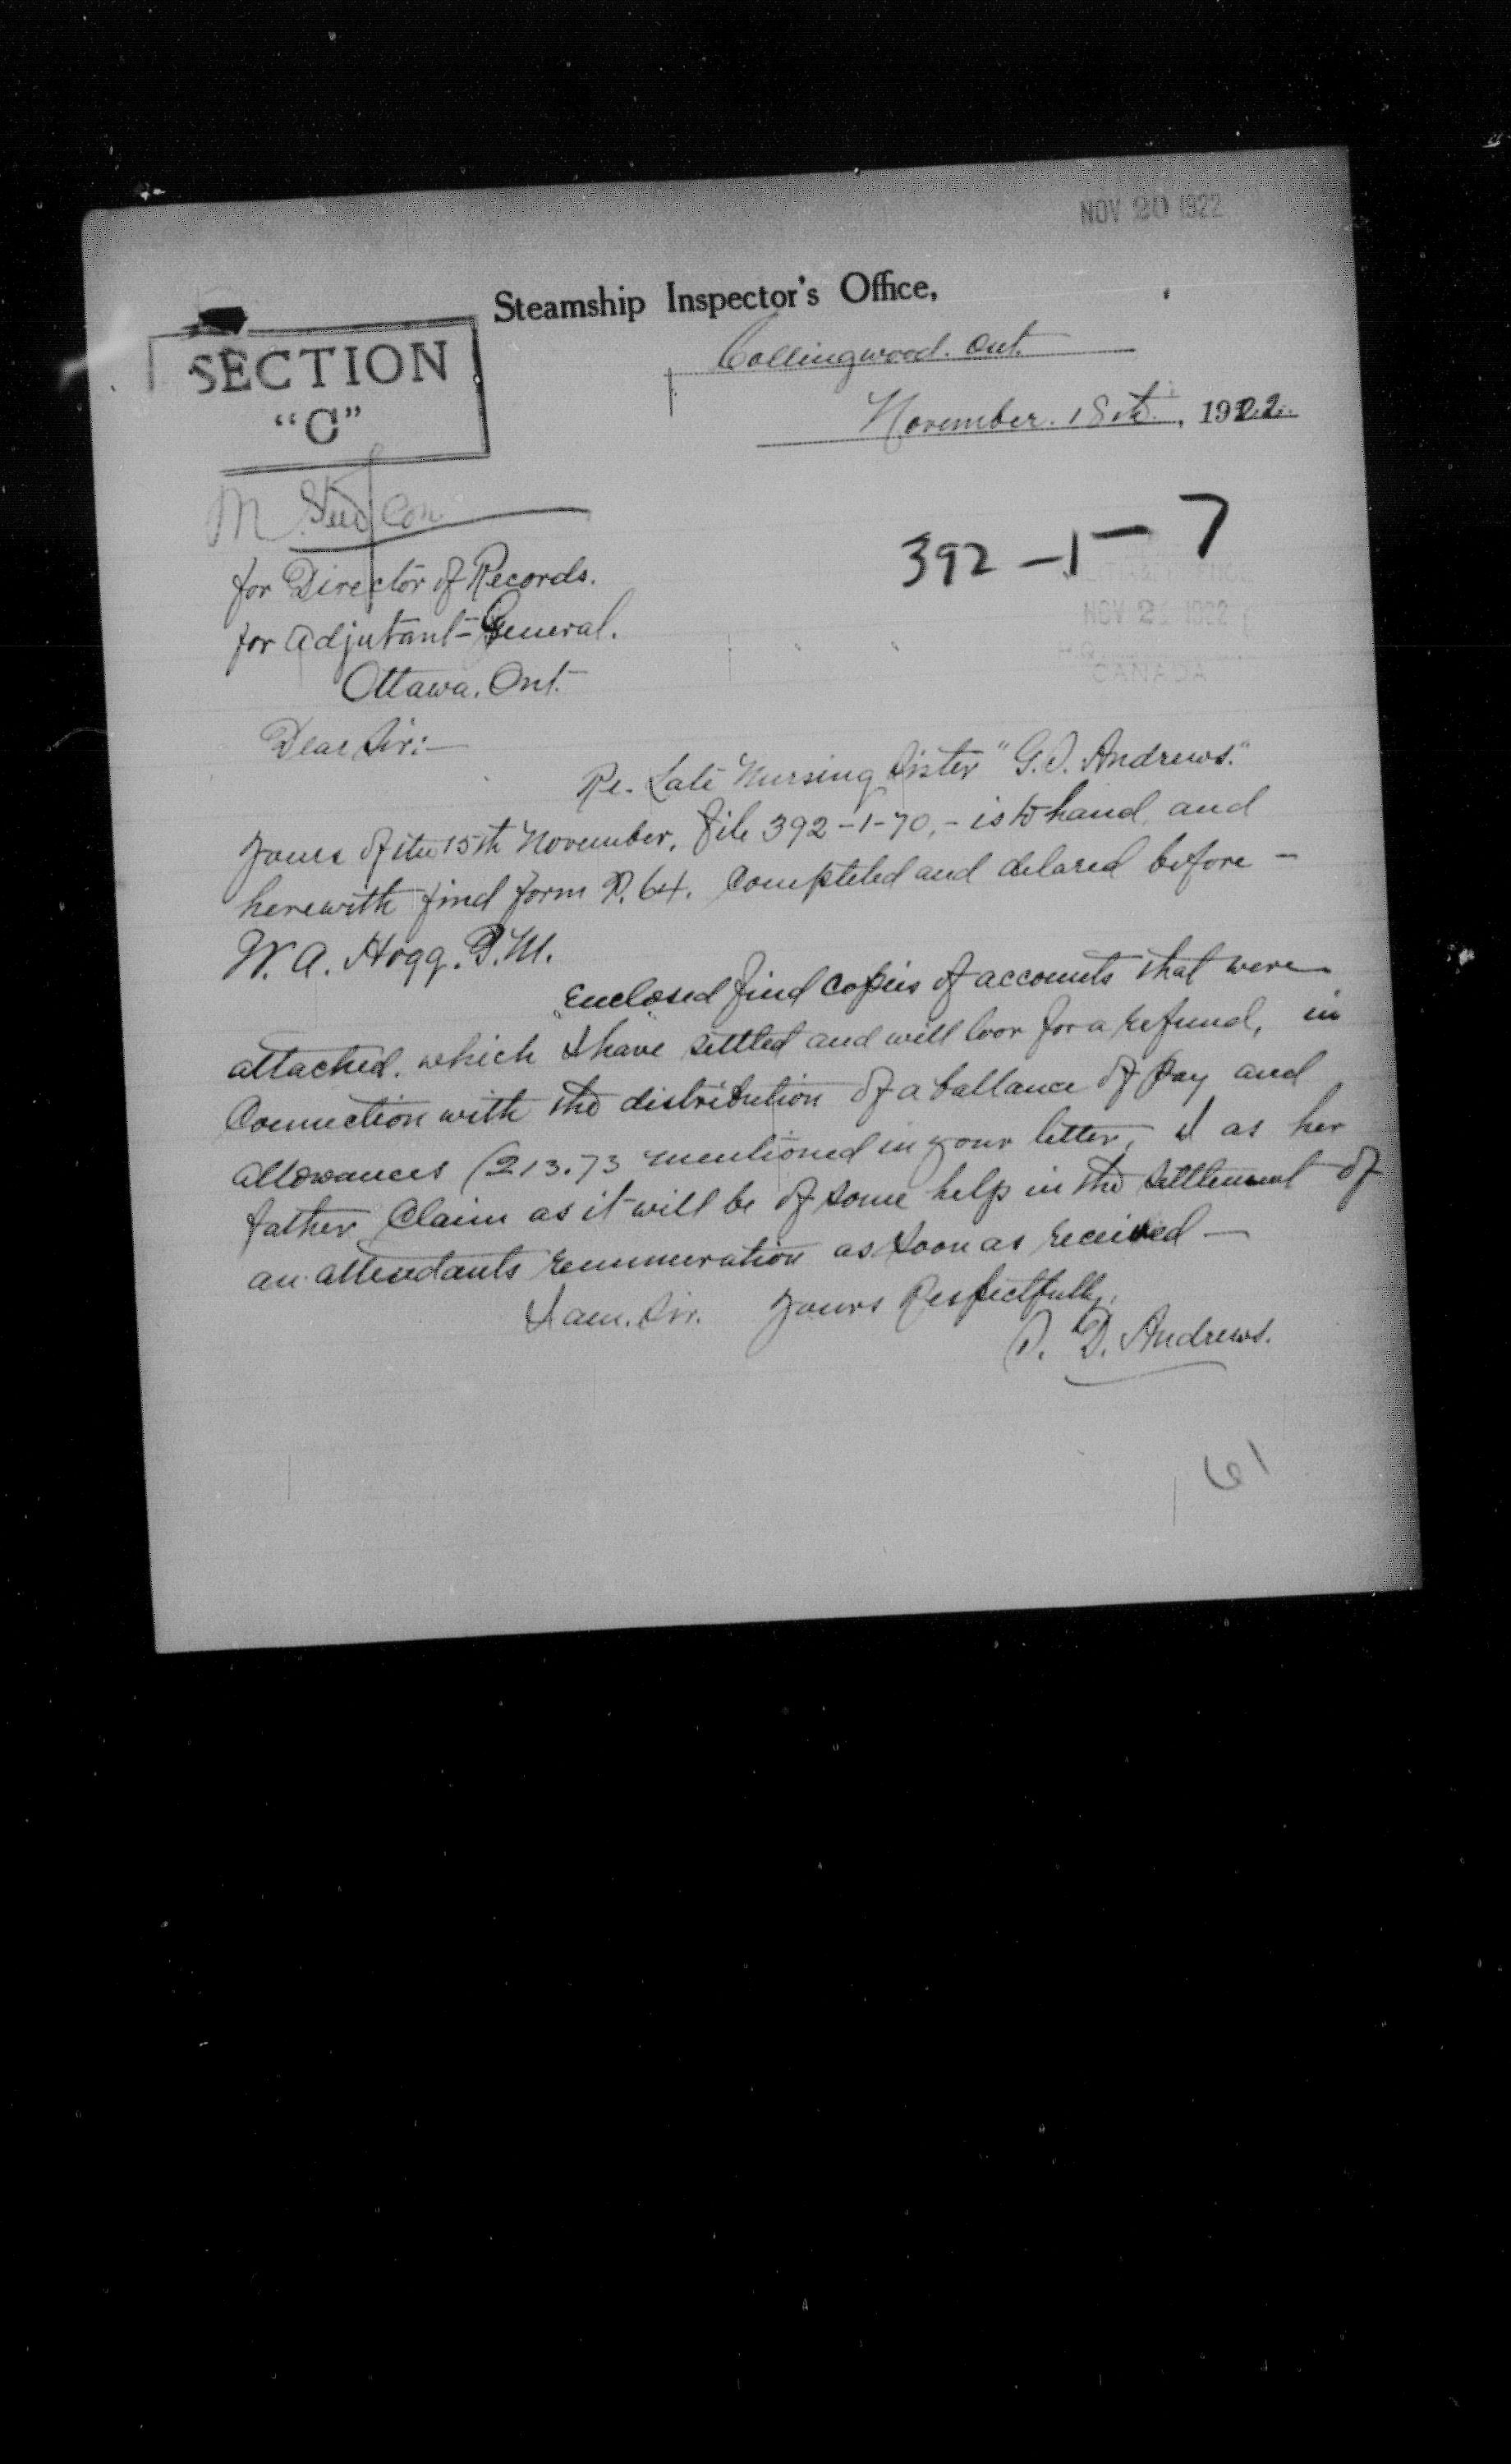 NOV 20 1922
Steamship Inspector's Office,
Collingwood. Ont.
SECTION
"C"
November. 18th, 1922.
392-1-7
for Director of Records.
for Adjutant-General.
NOV 2 1922
CANADA
Ottawa. Ont.
Dear Sir:—
Re. Late Nursing Sister "G.D. Andrews."
Yours of the 15th November, File 392-1-70,- is to hand, and
herewith find form P. 64. Completed and delared before -
W. A. Hogg. P.M.
Enclosed find copies of accounts that were
attached. which I have settled and will loor for a refund, in
Connection with the distribution of a ballance of Pay and
allowances (213.73 mentioned in your letter, I as her
father Claim as it will be of some help in the settlement of
an attendants remuneration as soon as received —
I am. Sir. Yours Respectfully,
D. Andrews.
61